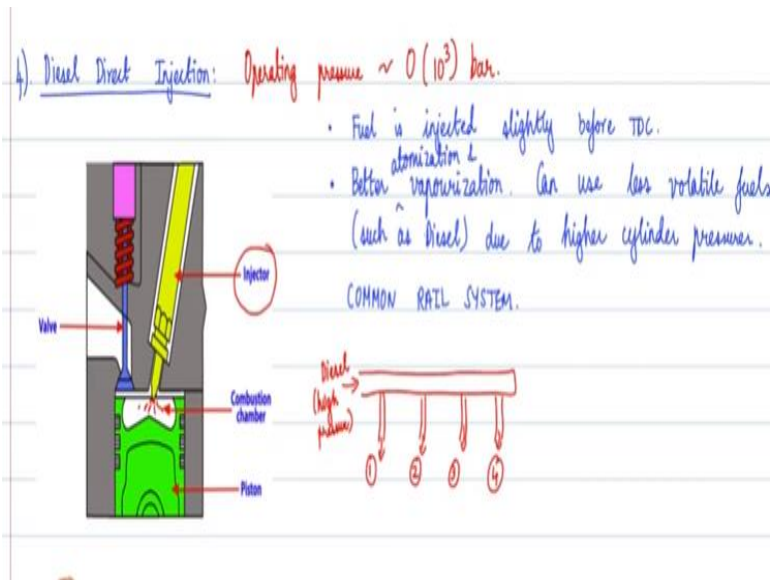 4). Diesel Direct Injection: Operating pressure ~ O(10³) bar.
• Fuel is injected slightly before TDC.
atomization &
• Better ^ vapourization. Can use less volatile fuels
(such as Diesel) due to higher cylinder pressures.
COMMON RAIL SYSTEM.
Injector
Valve
Combustion
chamber
Piston
Diesel
(high
pressure)
① ② ③ ④